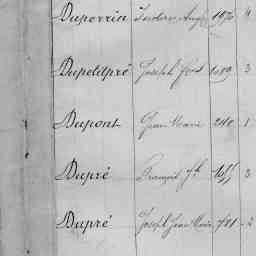 Duperrin Isidore Aug. 1970 4
Dupetitpré Joseph Frs 1089 3
Dupont Jean Marie 240 1
Dupré François Jh 3
Dupré Joseph Jean Marie 781 2